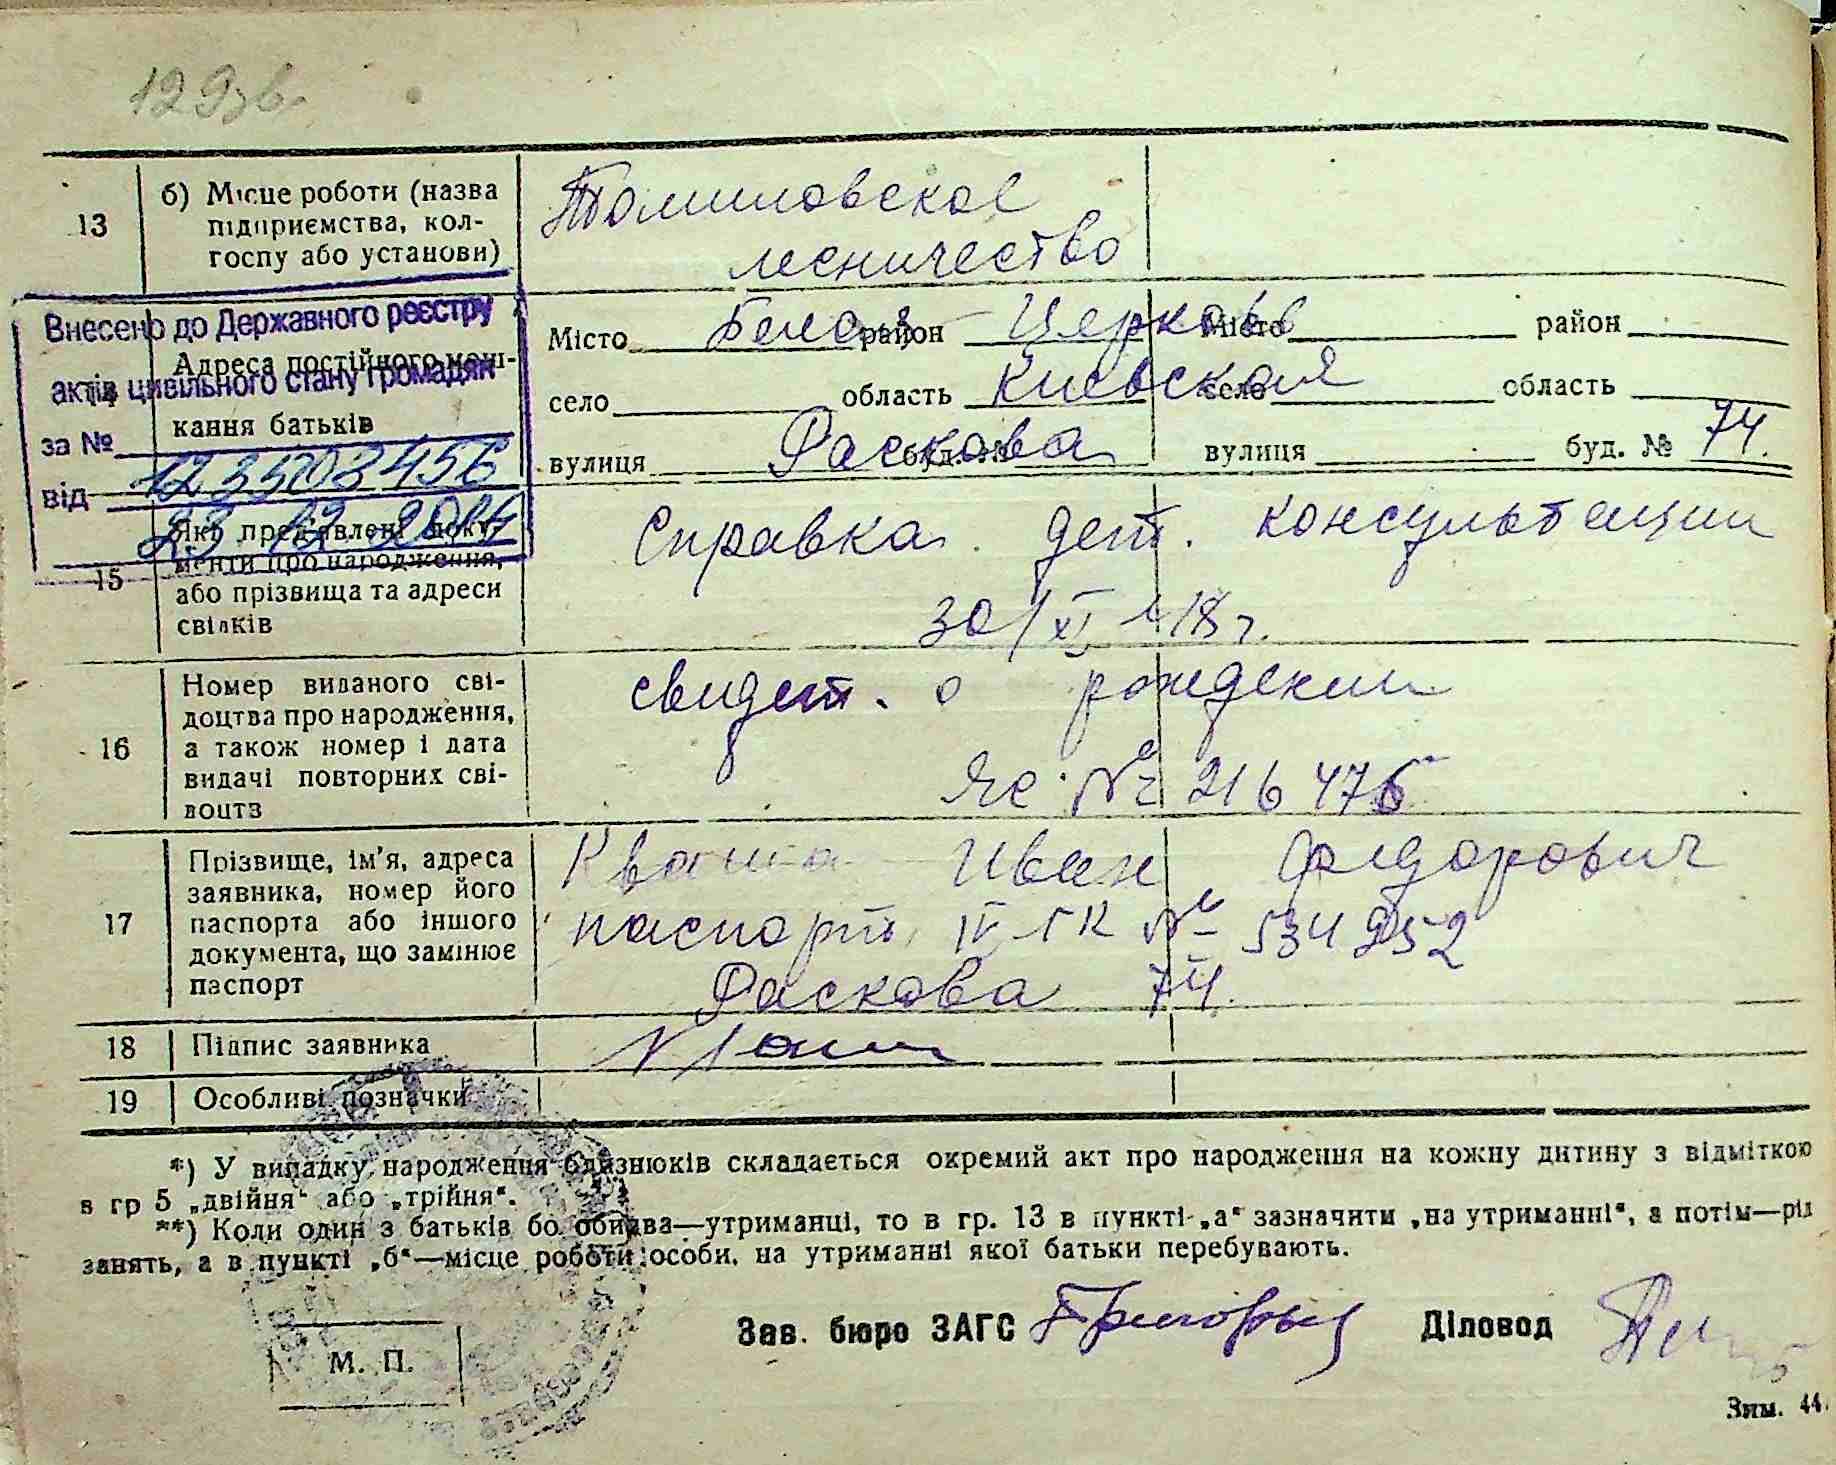 129зв.
13 б) Місце роботи (назва підприємства, колгоспу або установи)
Томиловское
лесничество
Внесено до Державного реєстру
актів цивільного стану громадян
за №
від
23 12 20
14 Адреса постійного меш-
кання батьків
Місто Белая район Церковь Місто район
село область Киевская село область
вулиця Раскова буд. № вулиця буд. № 74.
15 Які пред'явлені доку-
менти про народження,
або прізвища та адреси
свідків
Справка дет. консультации
30/XI 48 г.
16 Номер виданого сві-
доцтва про народження,
а також номер і дата
видачі повторних сві-
доцтв
свидет. о рождении
№ 216 476
17 Прізвище, ім'я, адреса
заявника, номер його
паспорта або іншого
документа, що замінює
паспорт
Кваша Иван Федорович
паспорт IV ГК № 534952
Раскова 74.
18 Підпис заявника
19 Особливі позначки
*) У випадку народження близнюків складається окремий акт про народження на кожну дитину з відміткою
в гр 5 „двійня“ або „трійня“.
**) Коли один з батьків бо обидва—утриманці, то в гр. 13 в пункті „а“ зазначити „на утриманні“, а потім—рід
занять, а в пункті „б“—місце роботи особи, на утриманні якої батьки перебувають.
Зав. бюро ЗАГС Діловод
М. П.
Зам. 44